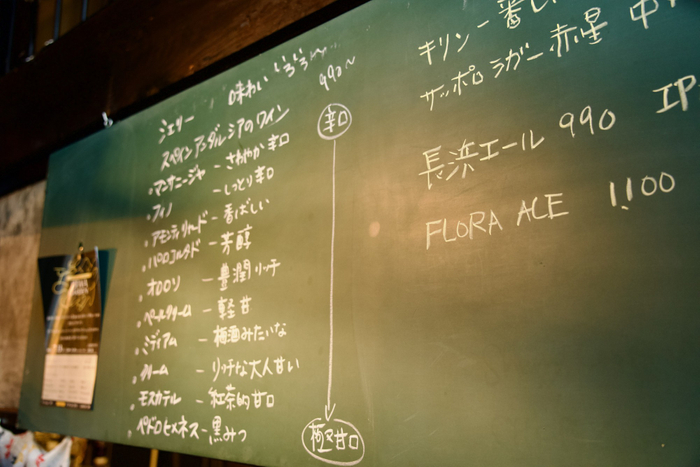 シェリー 味わいいろいろ〜 990〜
スペインアンダルシアのワイン
・マンサニージャ − さわやか辛口
・フィノ − しっとり辛口
・アモンティリャード − 香ばしい
・パロコルタド − 芳醇
・オロロソ − 豊潤リッチ
・ペールクリーム − 軽甘
・ミディアム − 梅酒みたいな
・クリーム − リッチな大人甘い
・モスカテル − 紅茶的甘口
・ペドロヒメネス − 黒みつ
辛口
極甘口
キリン − 香ばし
サッポロラガー 赤星 中
長浜エール 990 IP
FLORA ACE 1,100